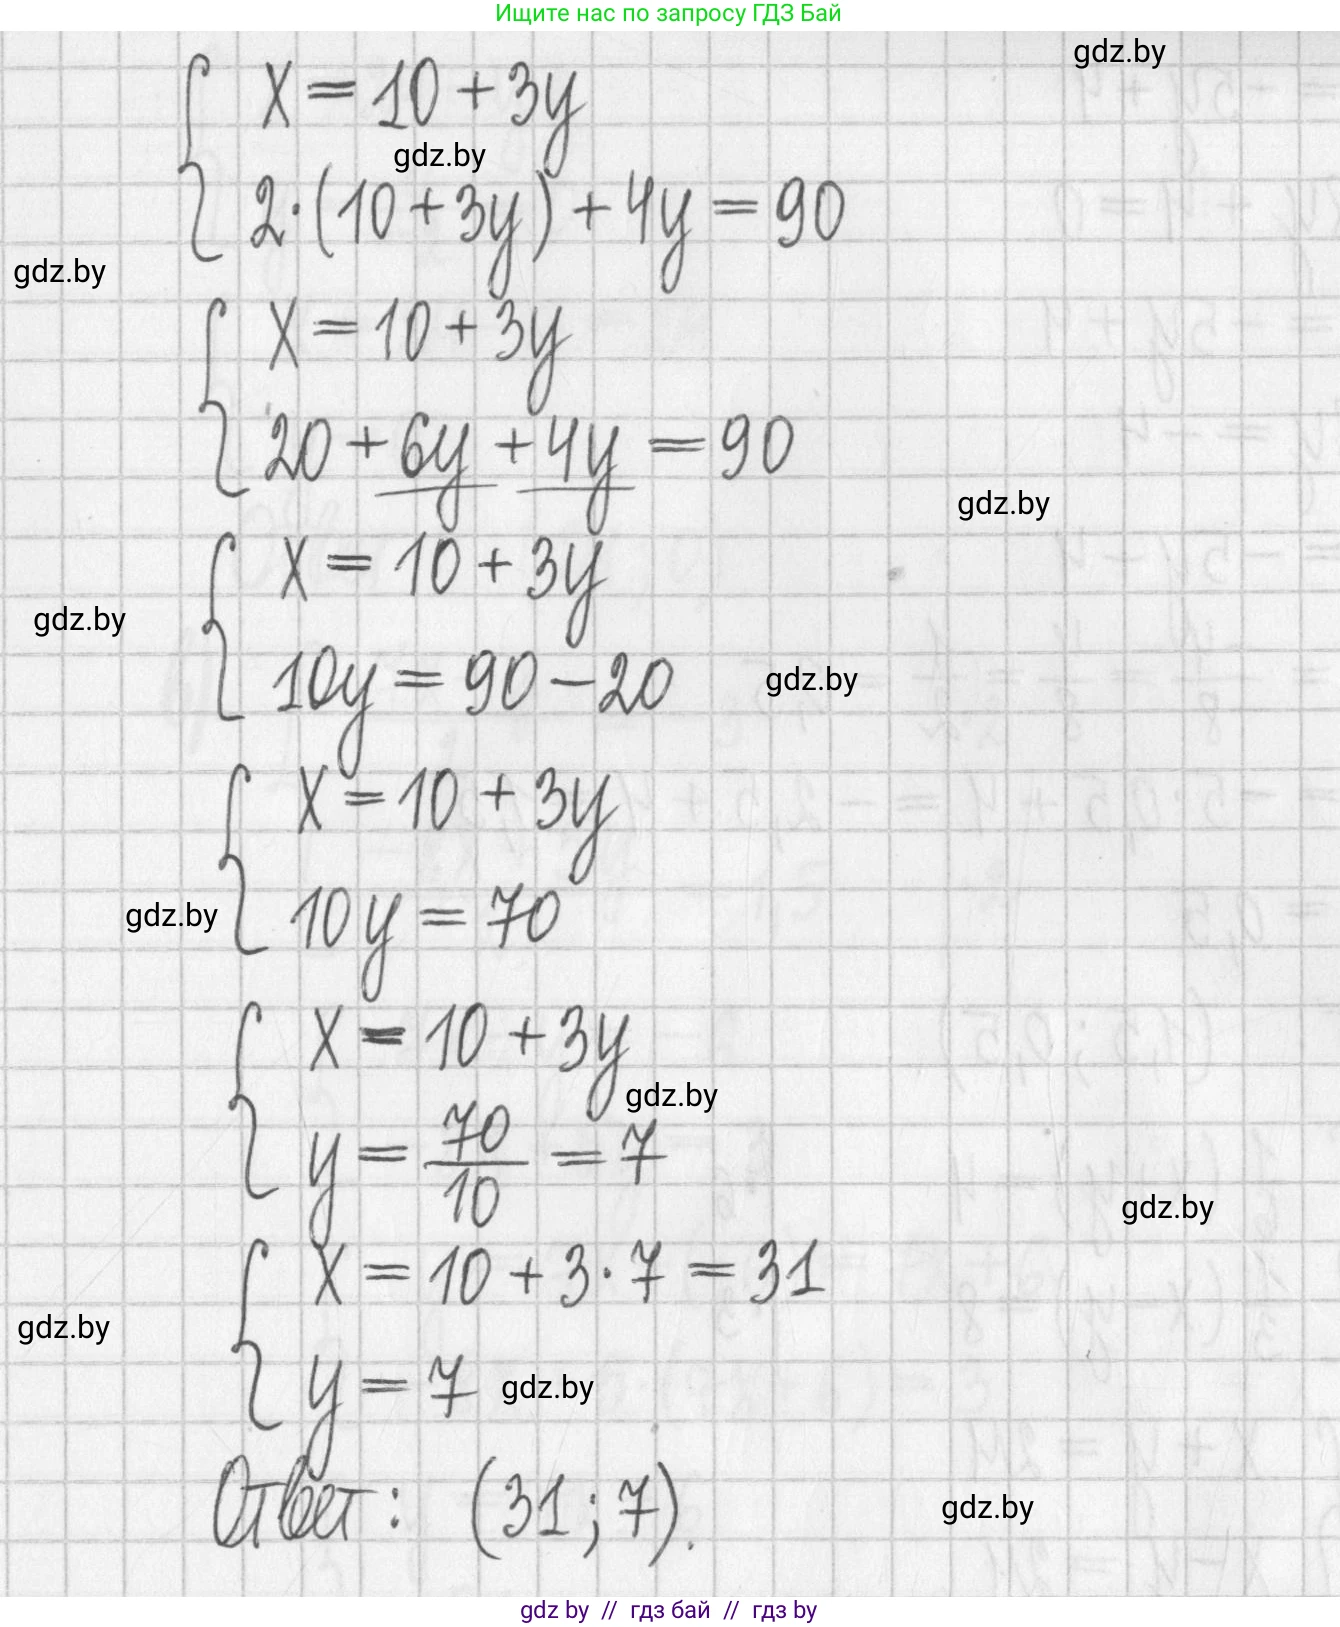 Ищите нас по запросу ГДЗ Бай
gdz.by
x = 10 + 3y
gdz.by
2·(10 + 3y) + 4y = 90
gdz.by
x = 10 + 3y
20 + 6y + 4y = 90
gdz.by
x = 10 + 3y
gdz.by
10y = 90 - 20
gdz.by
x = 10 + 3y
10y = 70
gdz.by
x = 10 + 3y
gdz.by
y = 70/10 = 7
gdz.by
x = 10 + 3·7 = 31
gdz.by
y = 7
gdz.by
Ответ: (31; 7).
gdz.by
gdz by // гдз бай // гдз by